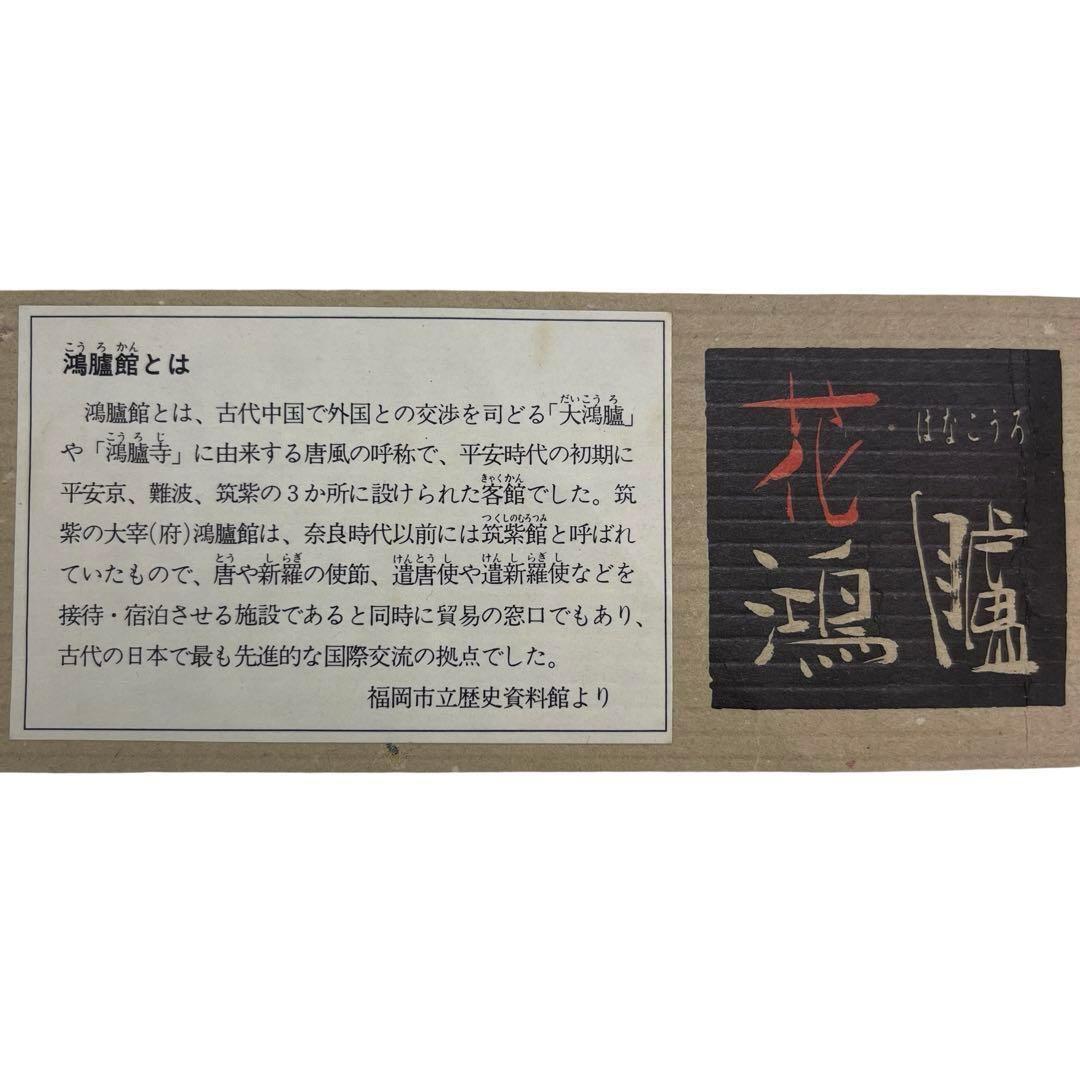 鴻臚館とは
鴻臚館とは、古代中国で外国との交渉を司どる「大鴻臚」
や「鴻臚寺」に由来する唐風の呼称で、平安時代の初期に
平安京、難波、筑紫の3か所に設けられた客館でした。筑
紫の大宰(府)鴻臚館は、奈良時代以前には筑紫館と呼ばれ
ていたもので、唐や新羅の使節、遣唐使や遣新羅使などを
接待・宿泊させる施設であると同時に貿易の窓口でもあり、
古代の日本で最も先進的な国際交流の拠点でした。
福岡市立歴史資料館より
花
鴻
臚
はなこうろ